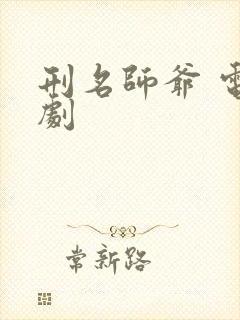 刑名師爺 電
劇
常新路